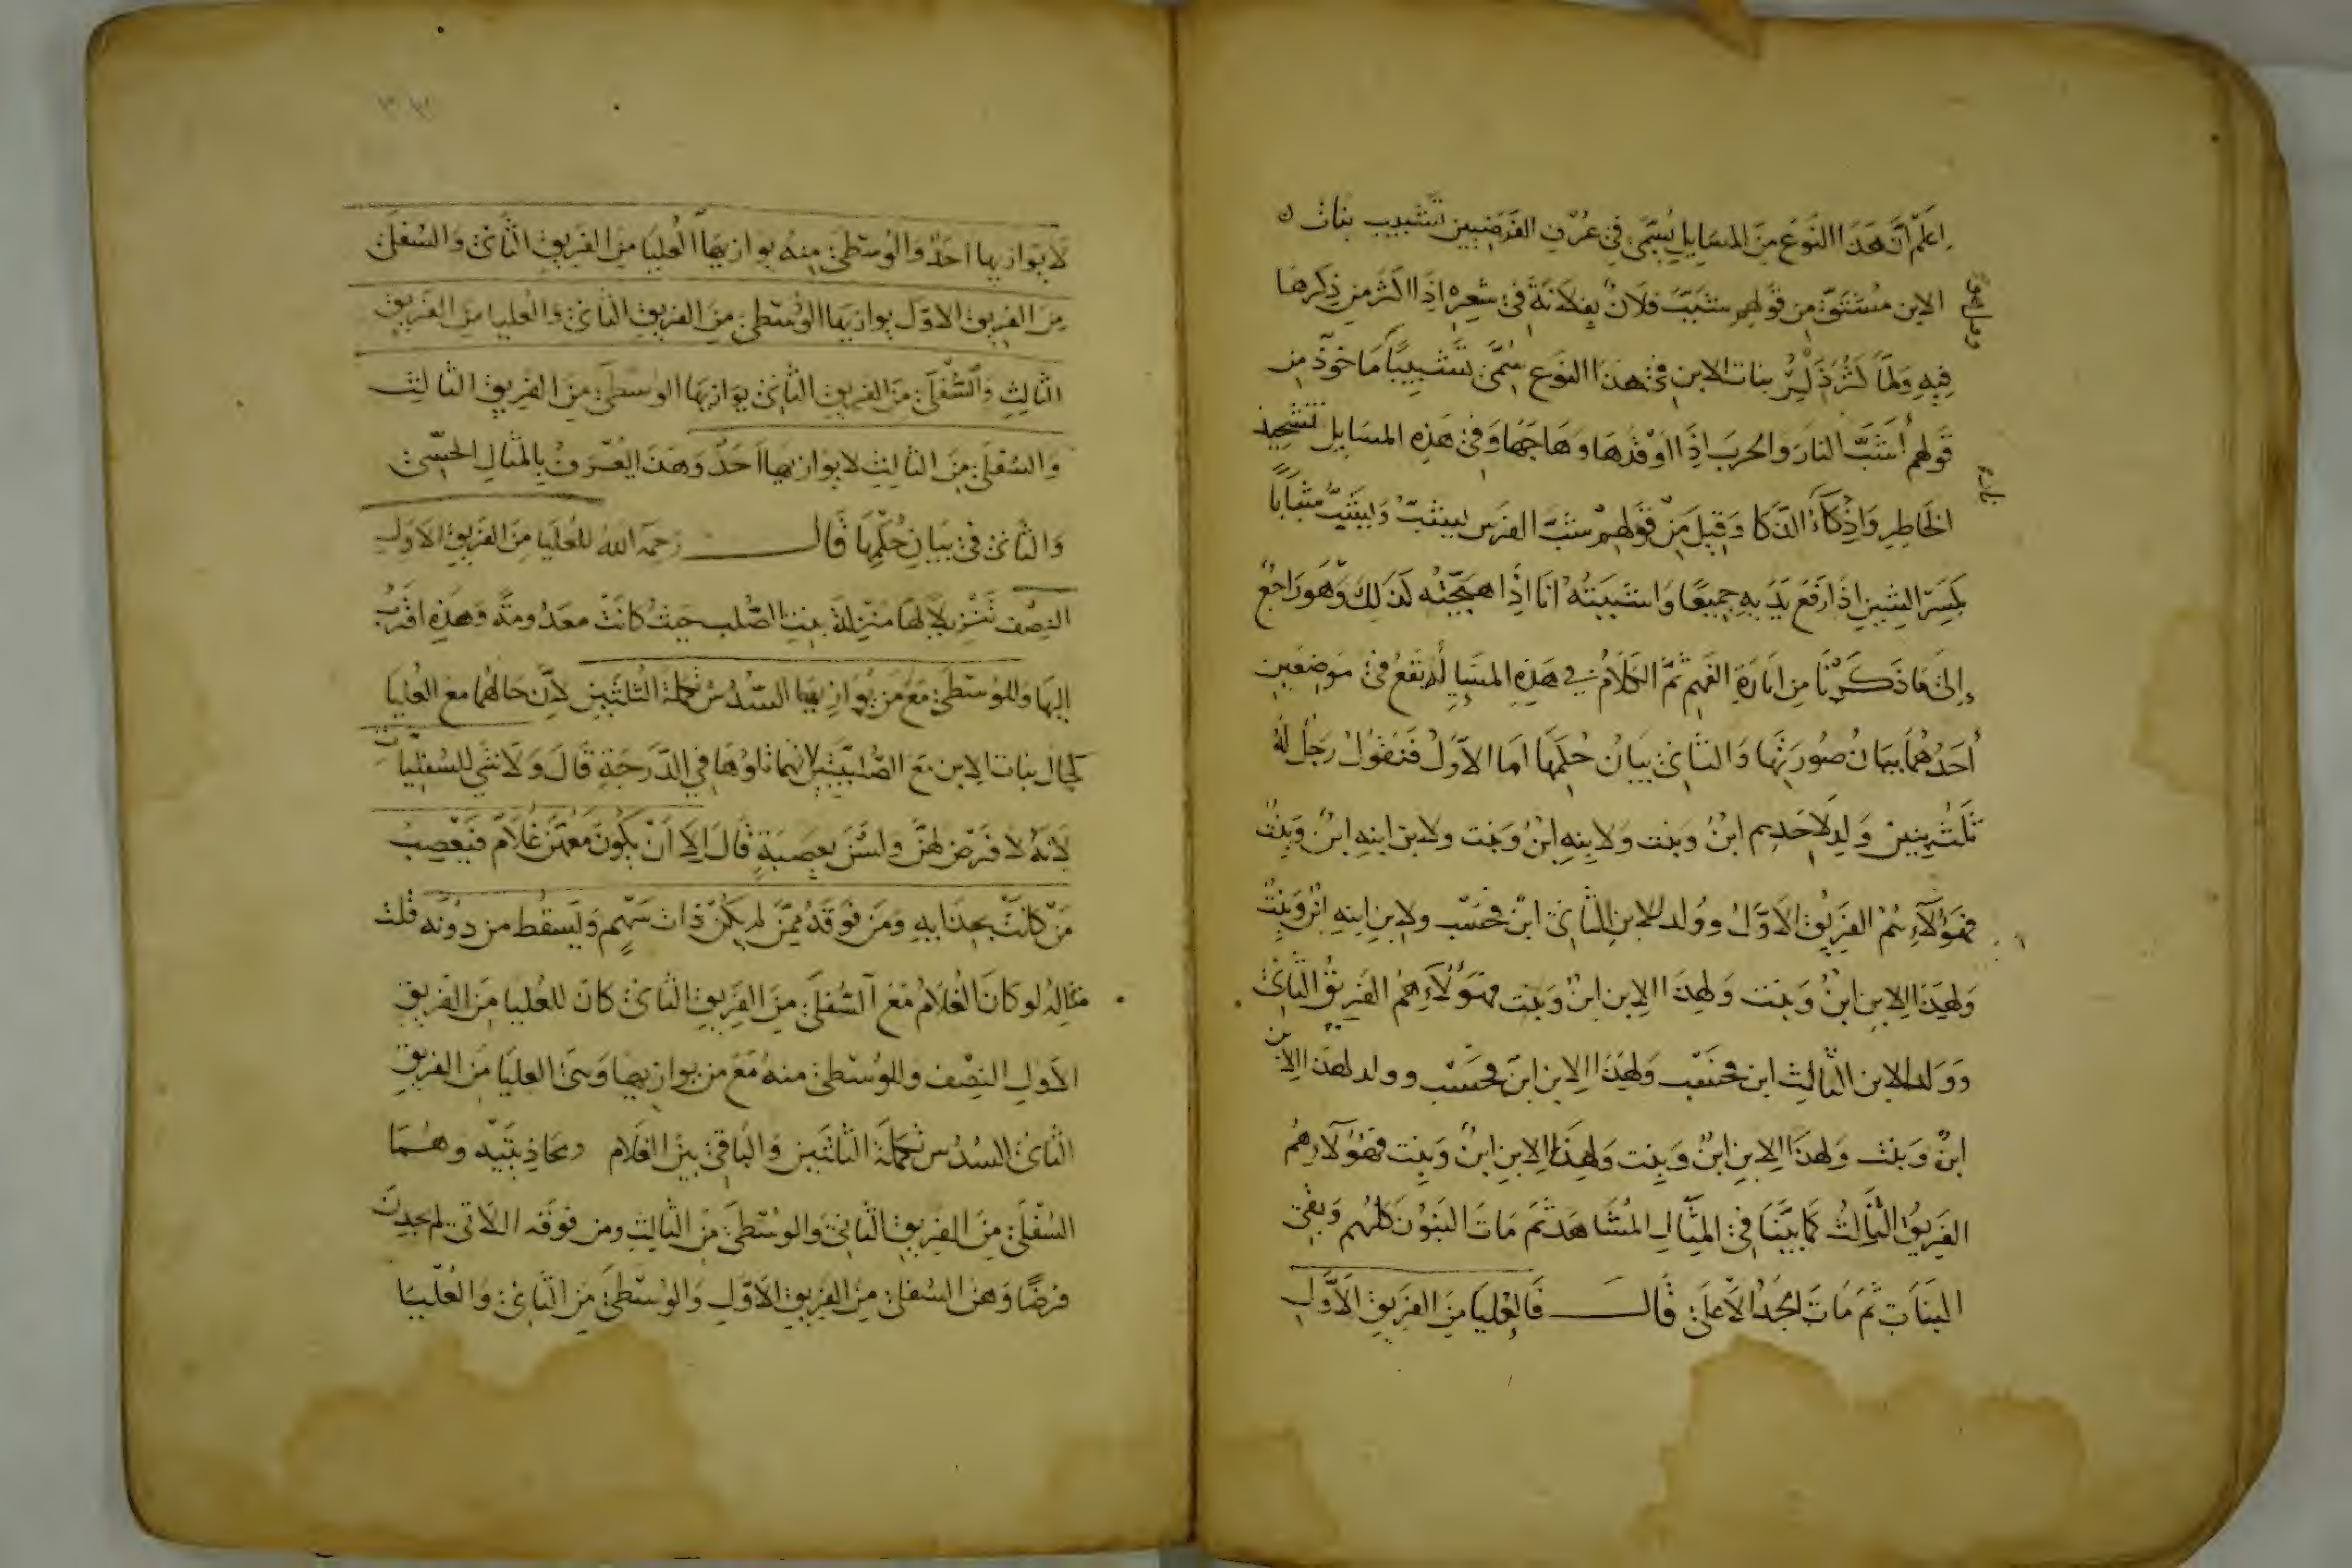 اعلم أن هذا النوع من المسايل يسمى في عرف الفرضيين تشبيب بنات
الابن مشتق من قولهم شبب فلان بفلانة في شعره اذا اكثر من ذكرها
فيه ولما كثر ذكر بنات الابن في هذا النوع سمي تشبيبا ماخوذ من
قولهم أشب النار والحرب اذا اوقدها وهاجها وفي هذه المسايل تشحيذ
الخاطر واذكاء الذكا وقيل من قولهم شب الفرس يشب ويشب شبابا
بكسر الشين اذا رفع يديه جميعا واشببته انا اذا هيجته كذلك وهو راجع
إلى ما ذكرنا من اثارة الفهم ثم الكلام في هذه المسايل يقع في موضعين
أحدهما بيان صورتها والثاني بيان حكمها اما الأول فنقول رجل له
ثلث بنين ولد لاحدهم ابن وبنت ولابنه ابن وبنت ولابن ابنه ابن وبنت
فهؤلاء هم الفريق الاول وولد للابن الثاني ابن فحسب ولابن ابنه ابن وبنت
ولهذا الابن ابن وبنت ولهذا الابن ابن وبنت فهؤلاء هم الفريق الثاني
وولد للابن الثالث ابن فحسب ولهذا الابن ابن فحسب وولد لهذا الابن
ابن وبنت ولهذا الابن ابن وبنت ولهذا الابن ابن وبنت فهؤلاء هم
الفريق الثالث كما بينا في المثال المشاهد ثم مات البنون كلهم وبقي
البنات ثم مات الجد الأعلى قال فالعليا من الفريق الأول
لا يوازيها احد والوسطى منه يوازيها العليا من الفريق الثاني والسفلى
من الفريق الاول يوازيها الوسطى من الفريق الثاني والعليا من الفريق
الثالث والسفلى من الفريق الثاني يوازيها الوسطى من الفريق الثالث
والسفلى من الثالث لا يوازيها احد وهذا يعرف بالمثال الحسي
والثاني في بيان حكمها قال رحمه الله للعليا من الفريق الاول
النصف تنزيلا لها منزلة بنت الصلب حيث كانت معدومة وهذه اقرب
اليها وللوسطى مع من يوازيها السدس تكملة الثلثين لأن حالهما مع العليا
كحال بنات الابن مع الصلبية لانهما تلوها في الدرجة قال ولا شي للسفليات
لانه لا فرض لهن ولسن بعصبة قال الا أن يكون معهن غلام فيعصب
من كانت بحذايه ومن فوقه ممن لم يكن ذات سهم ويسقط من دونه قلت
مثاله لو كان الغلام مع السفلى من الفريق الثاني كان للعليا من الفريق
الاول النصف وللوسطى منه مع من يوازيها وهي العليا من الفريق
الثاني السدس تكملة الثلثين والباقي بين الغلام ومحاذيتيه وهما
السفلى من الفريق الثاني والوسطى من الثالث ومن فوقه اللاتي لم يجدن
فرضا وهن السفلى من الفريق الأول والوسطى من الثاني والعليا